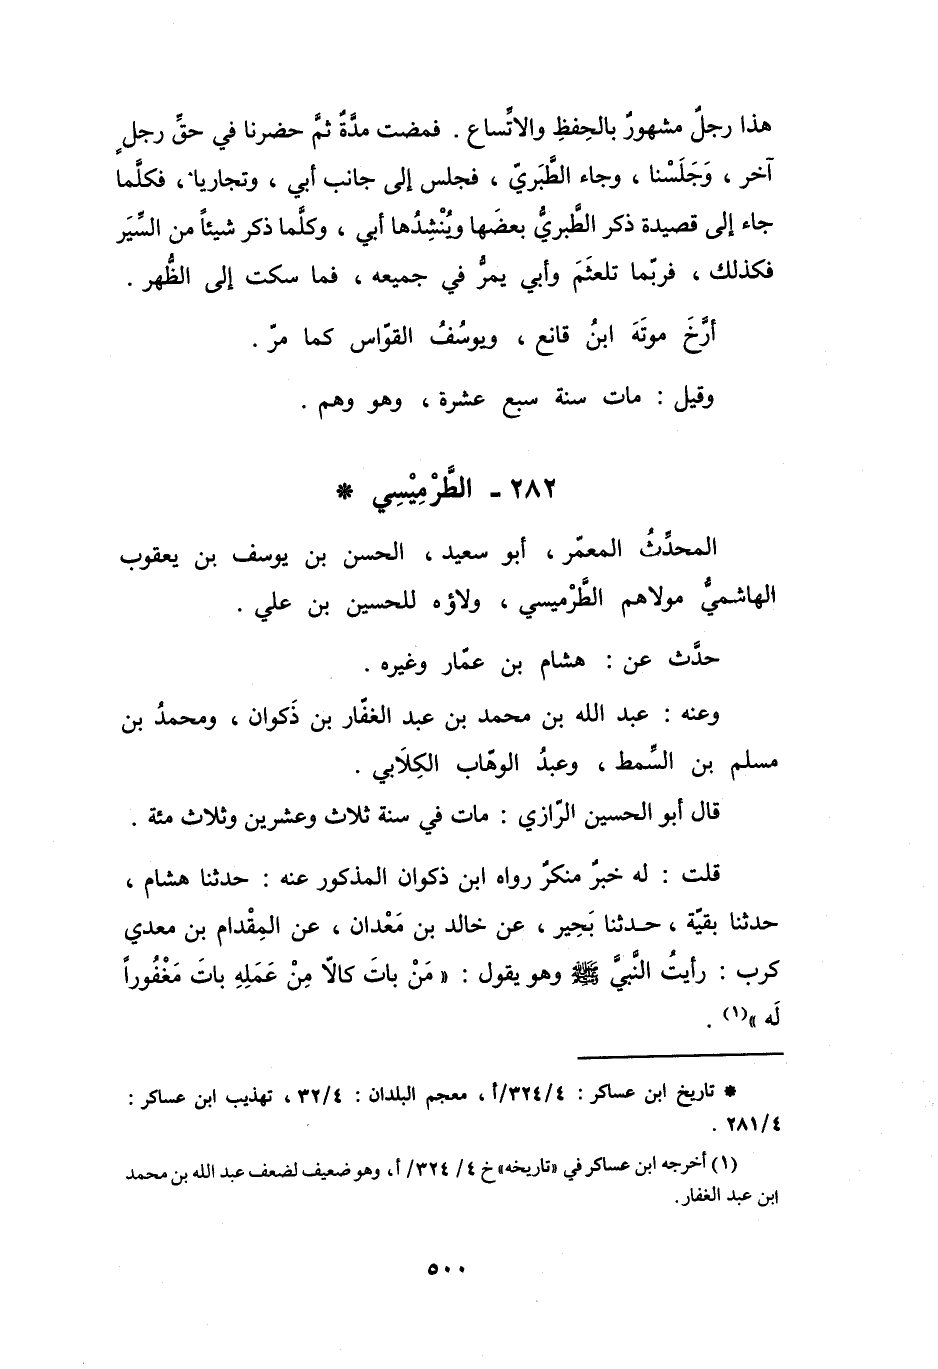 هذا رجلٌ مشهورٌ بالحِفظِ والاتِّساع . فمضت مدَّةٌ ثمَّ حضرنا في حقِّ رجلٍ
آخر ، وَجَلَسْنا ، وجاء الطَّبَريّ ، فجلس إلى جانب أبي ، وتجاريا ، فكلَّما
جاء إلى قصيدة ذكر الطَّبريُّ بعضَها ويُنْشِدُها أبي ، وكلَّما ذكر شيئاً من السِّيَر
فكذلك ، فربّما تلعثَمَ وأبي يمرُّ في جميعه ، فما سكت إلى الظُّهر .
أرَّخَ موتَهَ ابنُ قانع ، ويوسُفُ القوّاس كما مرّ .
وقيل : مات سنة سبع عشرة ، وهو وهم .
٢٨٢ - الطَّرْمِيْسِي *
المحدِّثُ المعمّر ، أبو سعيد ، الحسن بن يوسف بن يعقوب
الهاشميُّ مولاهم الطَّرْميسي ، ولاؤه للحسين بن علي .
حدَّث عن : هشام بن عمّار وغيره .
وعنه : عبد الله بن محمد بن عبد الغفّار بن ذَكوان ، ومحمدُ بن
مسلم بن السِّمط ، وعبدُ الوهّاب الكِلَابي .
قال أبو الحسين الرّازي : مات في سنة ثلاث وعشرين وثلاث مئة .
قلت : له خبرٌ منكرٌ رواه ابن ذكوان المذكور عنه : حدثنا هشام ،
حدثنا بقيّة ، حدثنا بَحِير ، عن خالد بن مَعْدان ، عن المِقْدام بن معدي
كرب : رأيتُ النَّبيَّ ﷺ وهو يقول : « مَنْ باتَ كالّا مِنْ عَمَلِهِ باتَ مَغْفُوراً
لَه »(١) .
* تاريخ ابن عساكر : ٤/ ٣٢٤/أ ، معجم البلدان : ٣٢/٤ ، تهذيب ابن عساكر :
٢٨١/٤ .
(١) أخرجه ابن عساكر في «تاريخه» خ ٤/ ٣٢٤/ أ، وهو ضعيف لضعف عبد الله بن محمد
ابن عبد الغفار.
٥٠٠